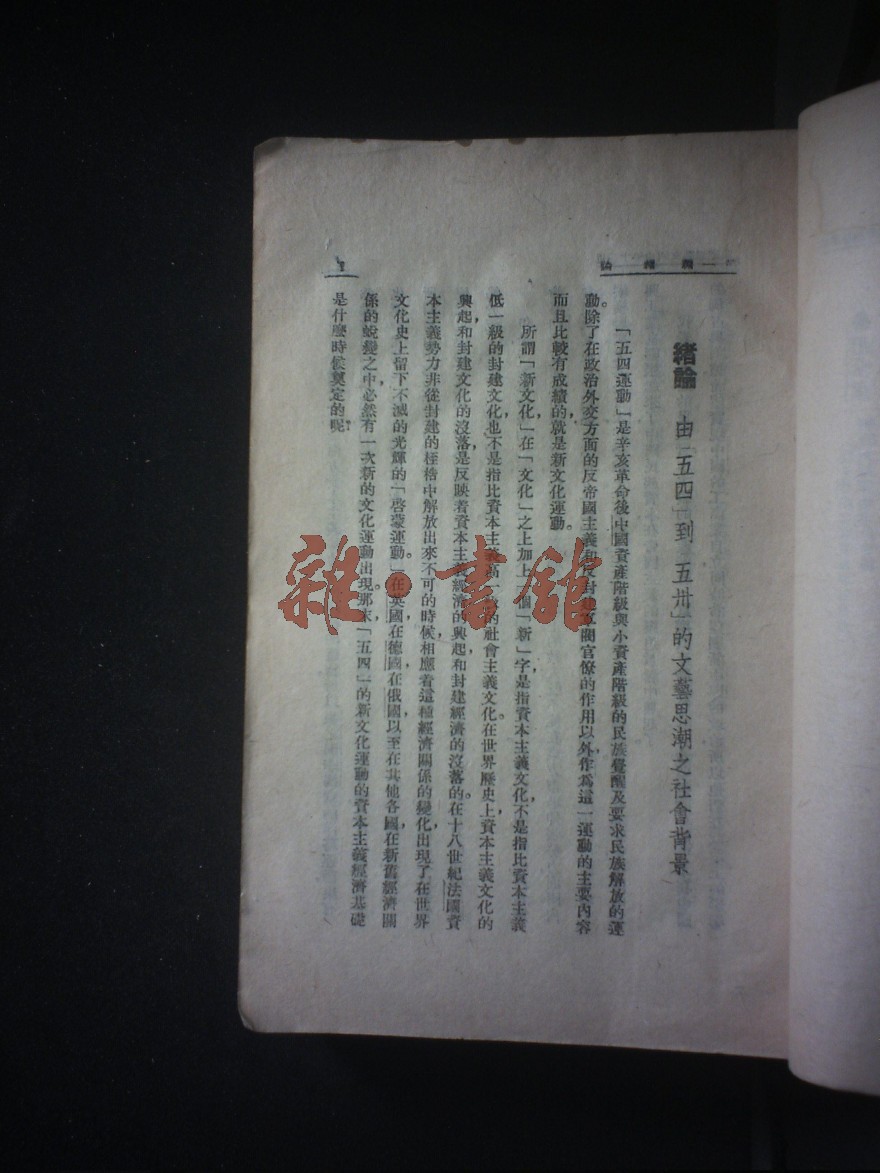 緒論
緒論　由「五四」到「五卅」的文藝思潮之社會背景
「五四運動」是辛亥革命後中國資產階級與小資產階級的民族覺醒及要求民族解放的運
動。除了在政治外交方面的反帝國主義和反封建軍閥官僚的作用以外，作爲這一運動的主要內容
而且比較有成績的，就是新文化運動。
所謂「新文化」，在「文化」之上加上一個「新」字，是指資本主義文化，不是指比資本主義
低一級的封建文化，也不是指比資本主義高一級的社會主義文化。在世界歷史上，資本主義文化的
興起和封建文化的沒落，是反映着資本主義經濟的興起和封建經濟的沒落的。在十八世紀法國資
本主義勢力非從封建的桎梏中解放出來不可的時候，相應着這種經濟關係的變化，出現了在世界
文化史上留下不滅的光輝的「啓蒙運動」。在英國，在德國，在俄國以至在其他各國，在新舊經濟關
係的蛻變之中，必然有一次新的文化運動出現。那末，「五四」的新文化運動的資本主義經濟基礎
是什麽時候奠定的呢？
雜·書館